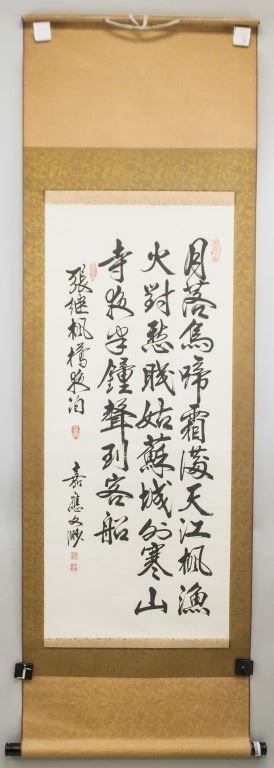 月落烏啼霜滿天江枫漁
火對愁眠姑蘇城外寒山
寺夜半鐘聲到客船
張继枫橋夜泊
嘉應